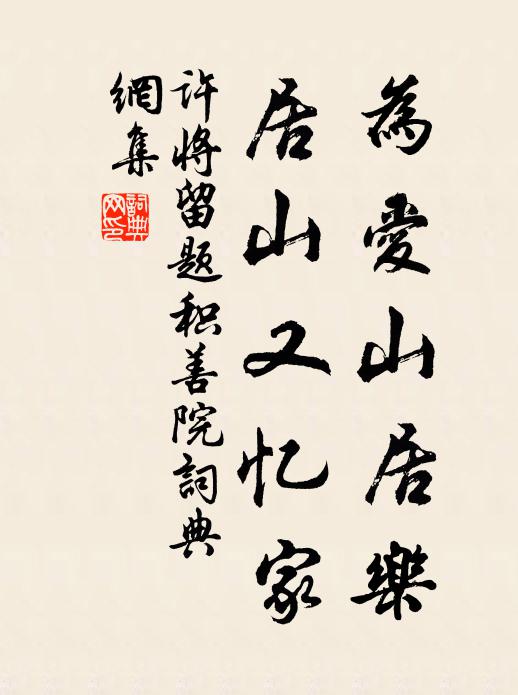 為愛山居樂
居山又忆家
许将留題积善院詞典
網集
詞典
网印